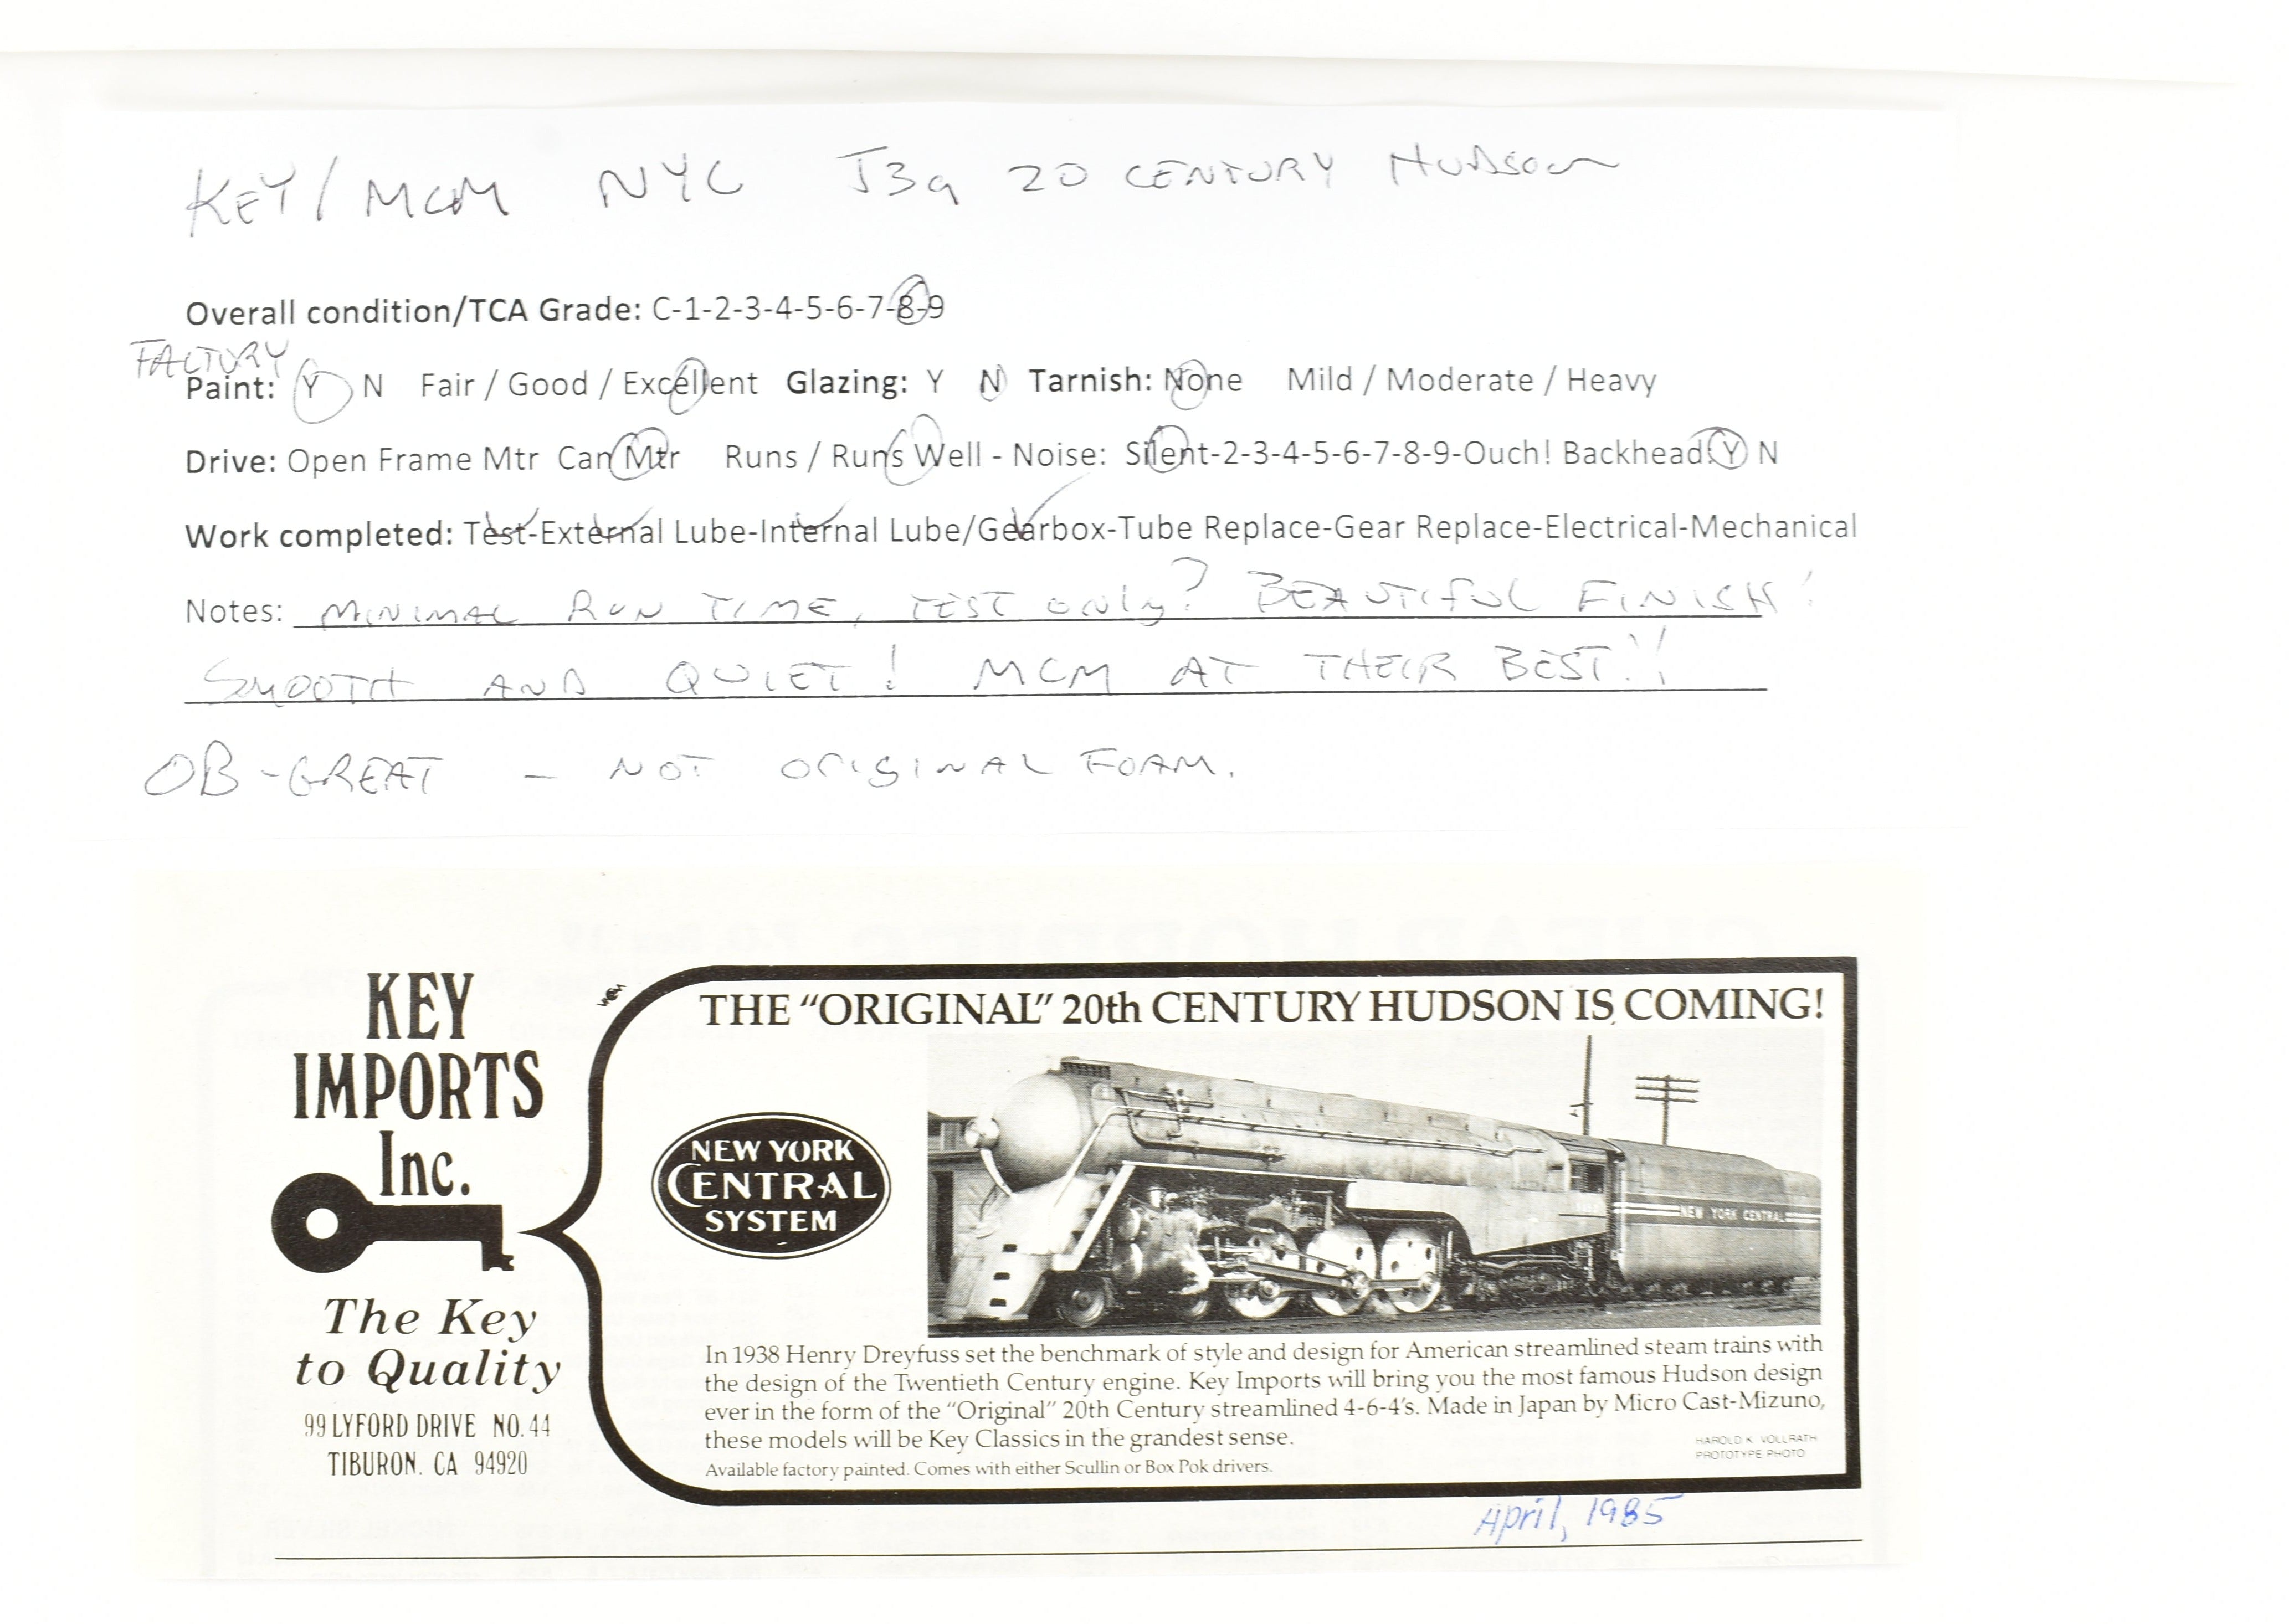 KEY/MCM NYC J3a 20 CENTURY HUDSON
Overall condition/TCA Grade: C-1-2-3-4-5-6-7-8-9
FACTORY
Paint: Y N Fair / Good / Excellent Glazing: Y N Tarnish: None Mild / Moderate / Heavy
Drive: Open Frame Mtr Can Mtr Runs / Runs Well - Noise: Silent-2-3-4-5-6-7-8-9-Ouch! Backhead: Y N
Work completed: Test-External Lube-Internal Lube/Gearbox-Tube Replace-Gear Replace-Electrical-Mechanical
Notes: MINIMAL RUN TIME, TEST only? BEAUTIFUL FINISH!
SMOOTH AND QUIET! MCM AT THEIR BEST!!
OB-GREAT - NOT ORIGINAL FOAM.
KEY
IMPORTS
Inc.
The Key
to Quality
99 LYFORD DRIVE NO. 44
TIBURON. CA 94920
THE "ORIGINAL" 20th CENTURY HUDSON IS COMING!
NEW YORK
CENTRAL
SYSTEM
NEW YORK CENTRAL
In 1938 Henry Dreyfuss set the benchmark of style and design for American streamlined steam trains with
the design of the Twentieth Century engine. Key Imports will bring you the most famous Hudson design
ever in the form of the "Original" 20th Century streamlined 4-6-4's. Made in Japan by Micro Cast-Mizuno,
these models will be Key Classics in the grandest sense.
Available factory painted. Comes with either Scullin or Box Pok drivers.
HAROLD K. VOLLRATH
PROTOTYPE PHOTO
April, 1985